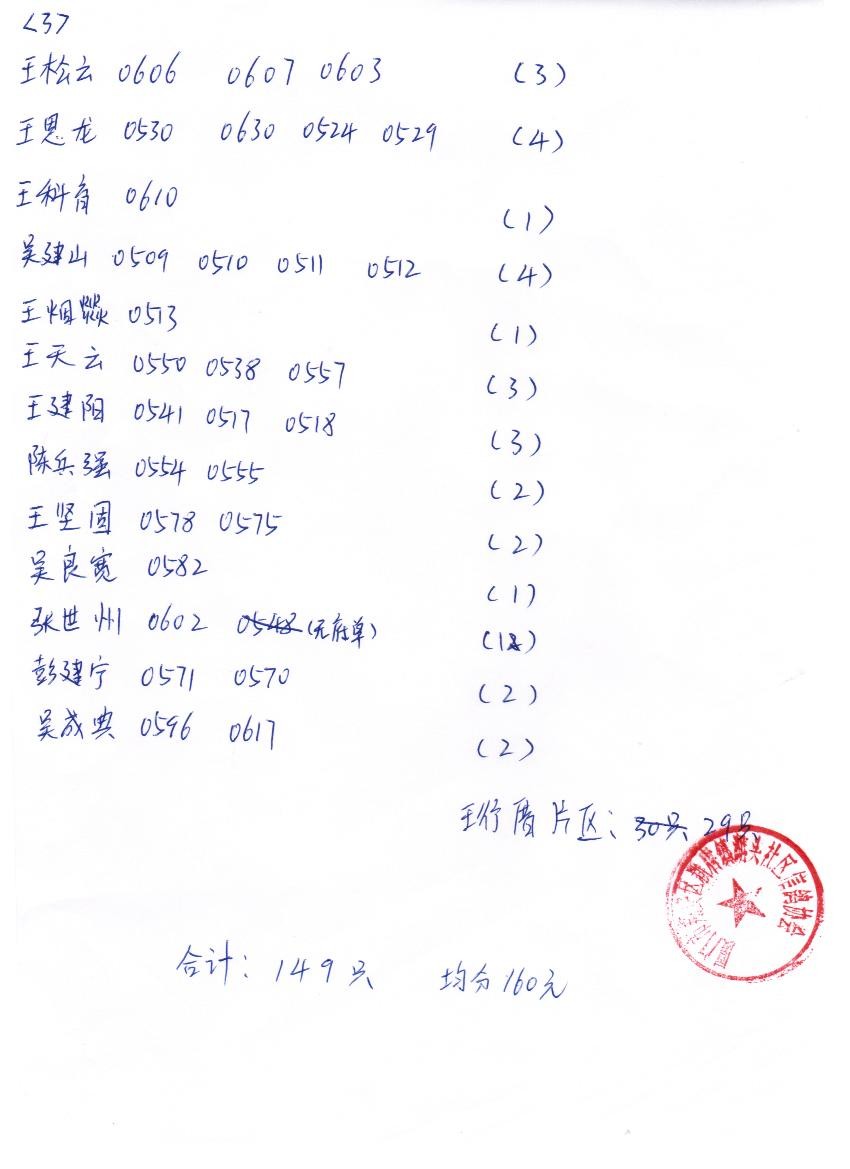 <3>
王松云 0606 0607 0603 (3)
王恩龙 0530 0630 0524 0529 (4)
王科育 0610 (1)
吴建山 0509 0510 0511 0512 (4)
王烟燚 0513 (1)
王天云 0550 0538 0557 (3)
王建阳 0541 0517 0518 (3)
陈兵强 0554 0555 (2)
王坚固 0578 0575 (2)
吴良宽 0582 (1)
张世州 0602 0548(无底单) (1)
彭建宁 0571 0570 (2)
吴成典 0596 0617 (2)
王行厝片区: 30只 29只
社区信鸽协会
合计: 149只 均分160元